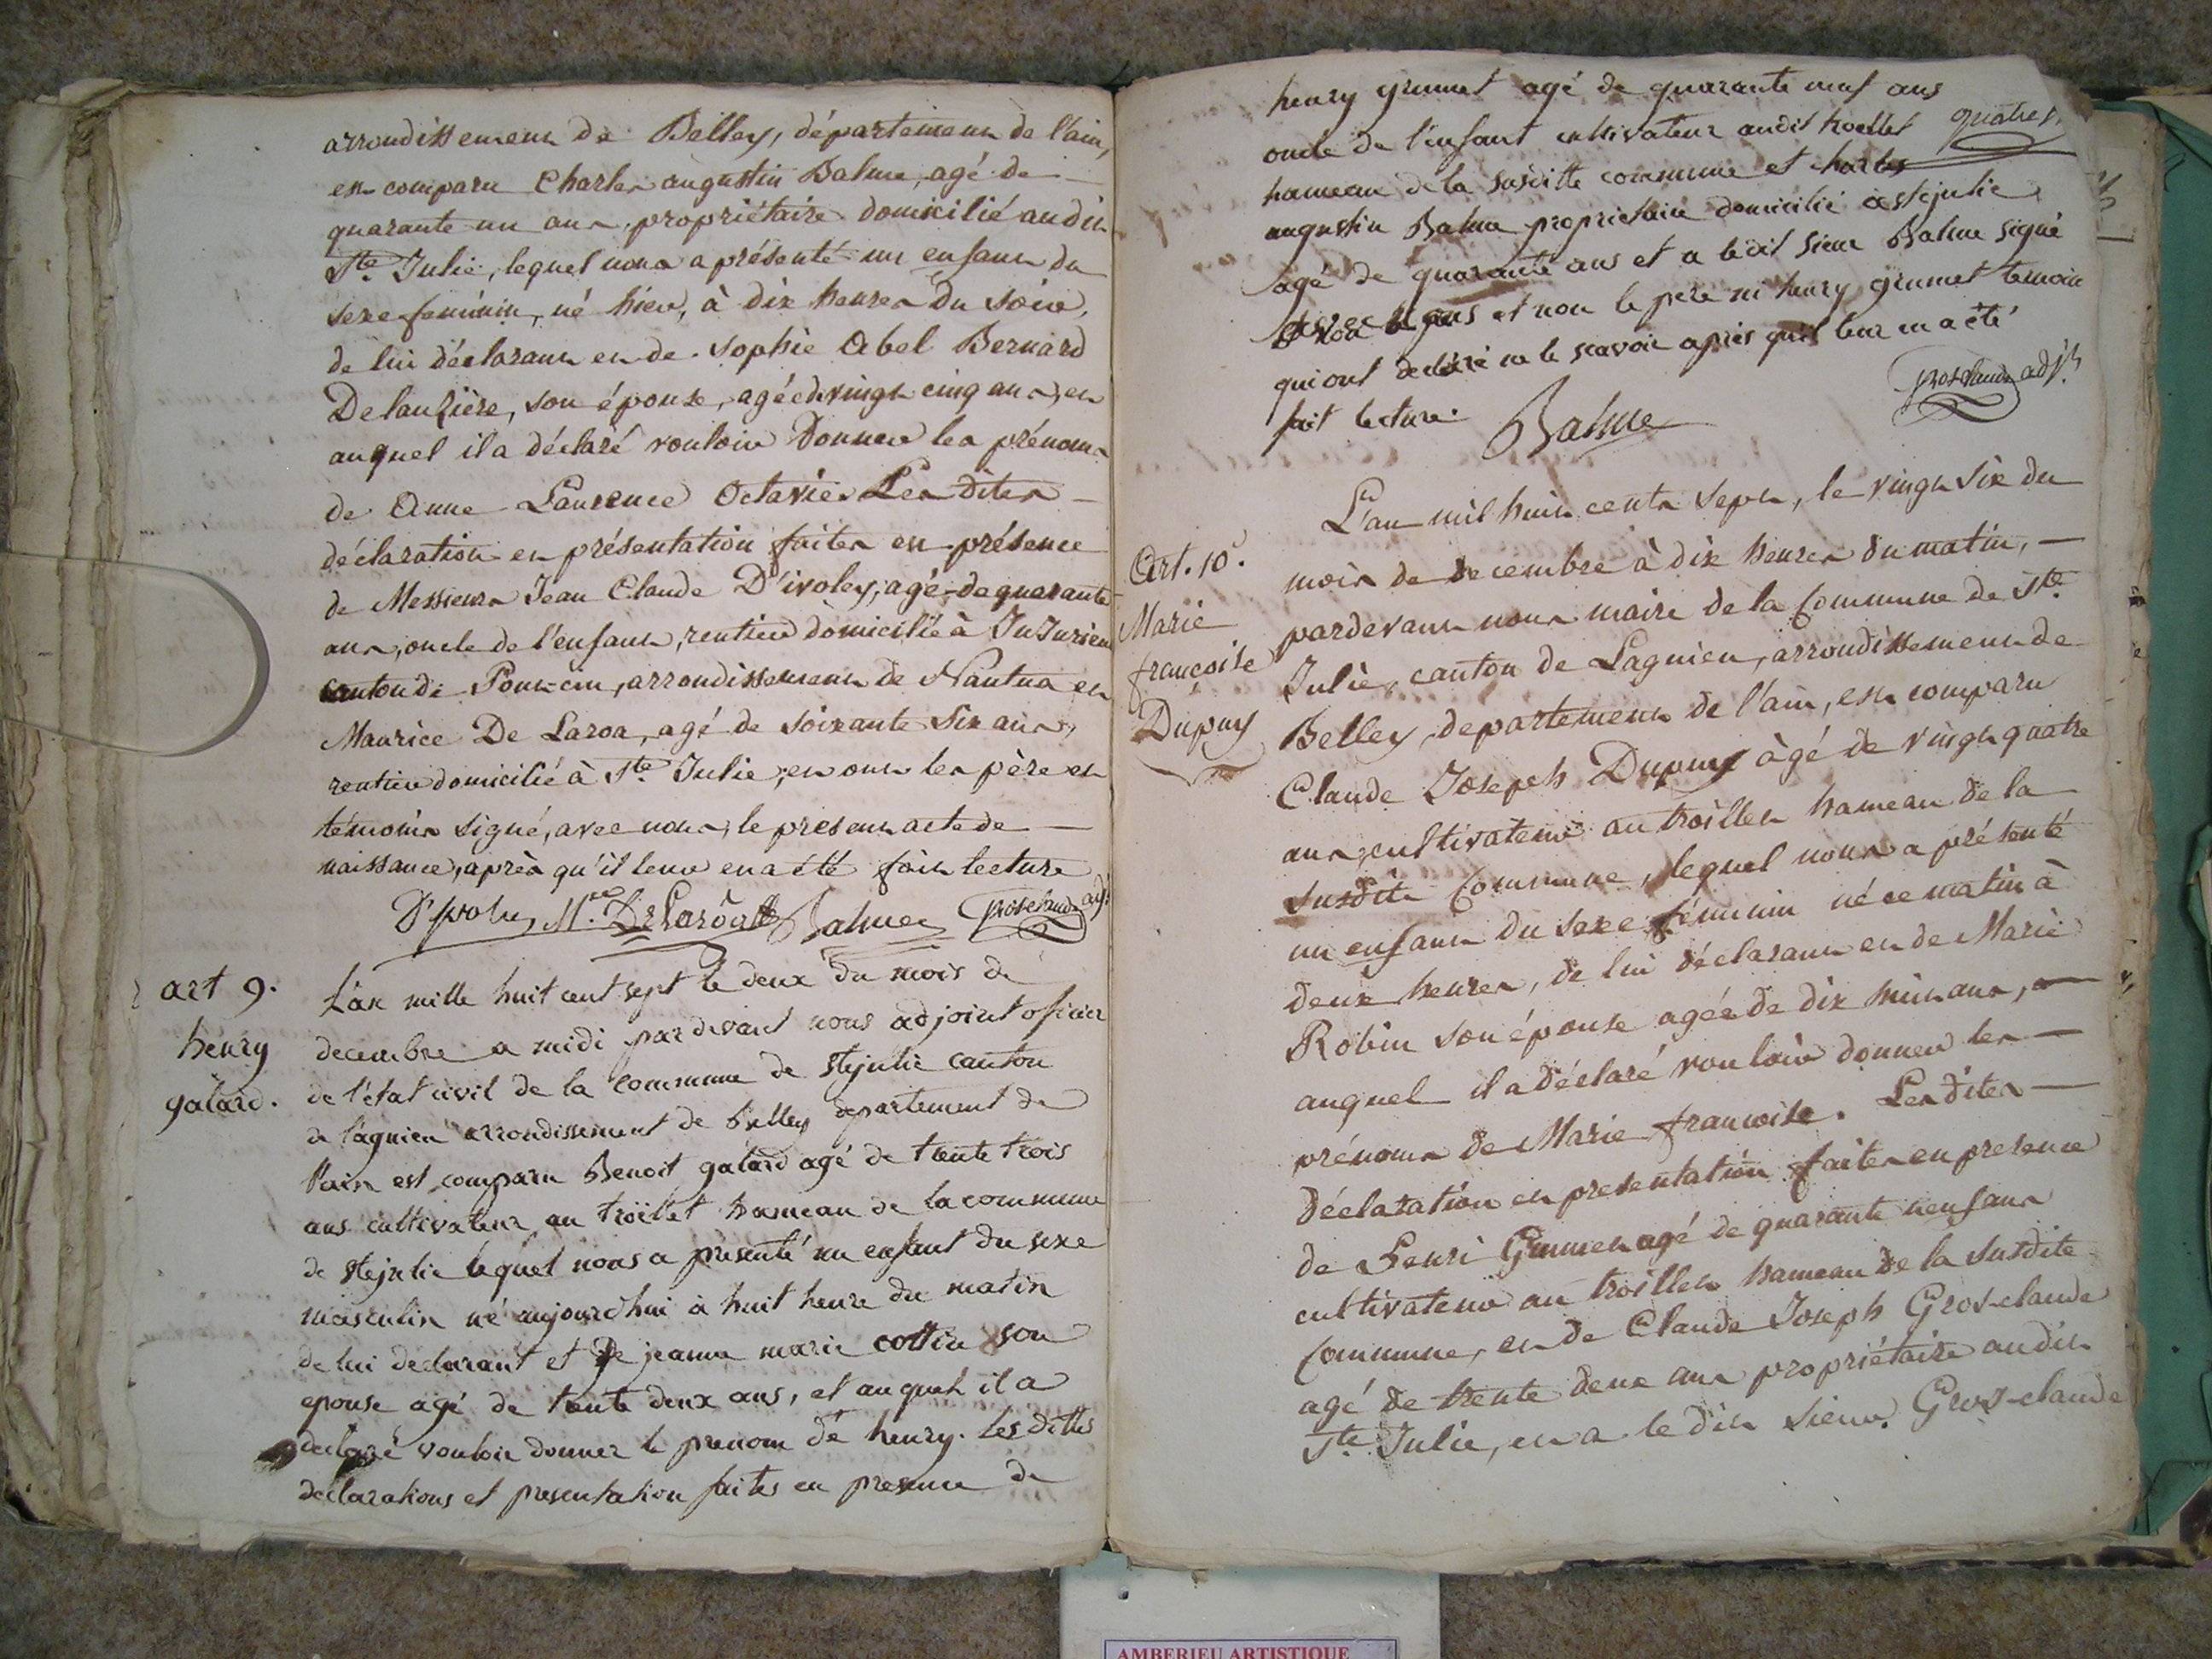 arrondissement de Belley, département de l'ain,
est comparu Charles augustin Balme, agé de
quarante un ans, propriétaire domicilié audit
Ste. Julie, lequel nous a présenté un enfant du
sexe feminin, né hier, à dix heures du soir,
de lui déclarant et de Sophie Abel Bernard
Delauzière, son épouse, agée de vingt cinq ans, et
auquel il a déclaré vouloir donner les prénoms
de Anne Laurence Octavie. Les dites
déclaration et présentation faites en présence
de Messieurs Jean Claude D'ivoley, agé de quarante
ans, oncle de l'enfant, rentier domicilié à Jujurieu
canton de Poncin, arrondissement de Nantua et
Maurice De Laroa, agé de soixante six ans,
rentier domicilié à Ste. Julie, et ont les père et
témoins signé, avec nous, le present acte de
naissance, après qu'il leur en a été fait lecture
Balme Grosclaude adj.
art 9.
henry
galard.
L'an mille huit cent sept le deux du mois de
decembre a midi pardevant nous adjoint officier
de l'état civil de la commune de stejulie canton
de lagnieu arrondissement de belley departement de
l'ain est comparu Benoit galard agé de trente trois
ans cultivateur au troillet hameau de la commune
de stejulie lequel nous a presenté un enfant du sexe
masculin né aujourdhui à huit heure du matin
de lui declarant et de jeanne marie cottin son
epouse agé de trente deux ans, et auquel il a
declaré vouloir donner le prenom de henry. les dittes
declarations et presentation faites en presence de
henry grumet agé de quarante neuf ans
oncle de l'enfant cultivateur audit troillet
hameau de la susditte commune et charles
augustin Balme proprietaire domicilié a stejulie
agé de quarante ans et a ledit sieur Balme signé
avec nous et non le pere ni henry grumet temoin
qui ont declaré ne le scavoir apres qu'il leur en a été
fait lecture.
Balme
Grosclaude adjt.
Art. 10.
Marie
françoise
Dupuy
L'an mil huit cents sept, le vingt six du
mois de decembre à dix heures du matin,
pardevant nous maire de la Commune de Ste.
Julie, canton de Lagnieu, arrondissement de
Belley, departement de l'ain, est comparu
Claude Joseph Dupuy àgé de vingt quatre
ans, cultivateur au troillet hameau de la
susdite Commune, lequel nous a présenté
un enfant du sexe féminin né ce matin à
deux heures, de lui déclarant et de Marie
Robin son épouse agée de dix huit ans,
auquel il a déclaré vouloir donner les
prénoms de Marie françoise. Les dites
déclaration et presentation faites en presence
de Henri Grumet agé de quarante neuf ans
cultivateur au troillet hameau de la susdite
Commune, et de Claude Joseph Gros-claude
agé de trente deux ans propriétaire audit
Ste. Julie, et a le dit sieur Gros-claude
AMBERIEU ARTISTIQUE